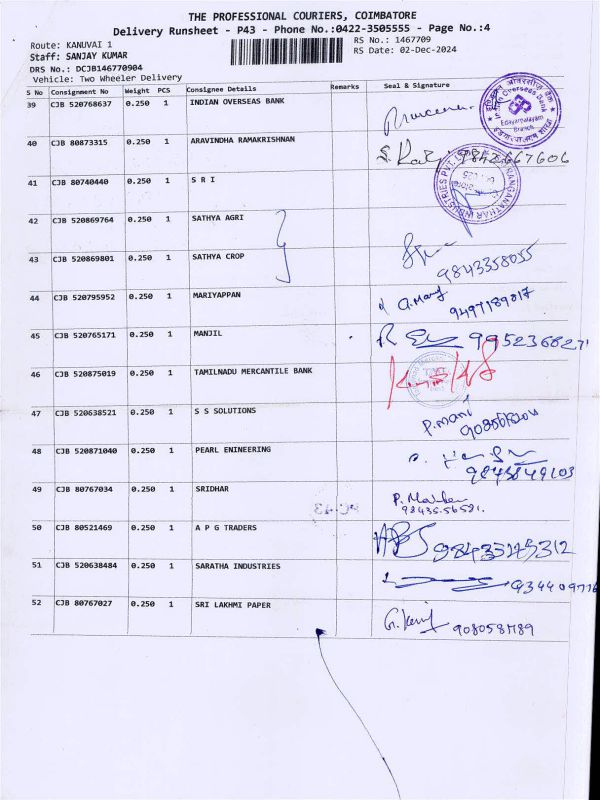 THE PROFESSIONAL COURIERS, COIMBATORE
Delivery Runsheet - P43 - Phone No.:0422-3505555 - Page No.:4
Route: KANUVAI 1
RS No.: 1467709
Staff: SANJAY KUMAR
RS Date: 02-Dec-2024
DRS No.: DCJB146770904
Vehicle: Two Wheeler Delivery
S No Consignment No Weight PCS Consignee Details Remarks Seal & Signature
39 CJB 520768637 0.250 1 INDIAN OVERSEAS BANK
Indian Overseas Bank
Edayarpalayam
Branch
40 CJB 80873315 0.250 1 ARAVINDHA RAMAKRISHNAN 9842667606
41 CJB 80740440 0.250 1 S R I
RANGANATHAR INDUSTRIES PVT. LTD.
42 CJB 520869764 0.250 1 SATHYA AGRI
43 CJB 520869801 0.250 1 SATHYA CROP 9843358055
44 CJB 520795952 0.250 1 MARIYAPPAN 9497189017
45 CJB 520765171 0.250 1 MANJIL 9952368271
46 CJB 520875019 0.250 1 TAMILNADU MERCANTILE BANK
47 CJB 520638521 0.250 1 S S SOLUTIONS P.mani
48 CJB 520871040 0.250 1 PEARL ENINEERING
49 CJB 80767034 0.250 1 SRIDHAR
98435.56521.
50 CJB 80521469 0.250 1 A P G TRADERS
51 CJB 520638484 0.250 1 SARATHA INDUSTRIES
52 CJB 80767027 0.250 1 SRI LAKHMI PAPER